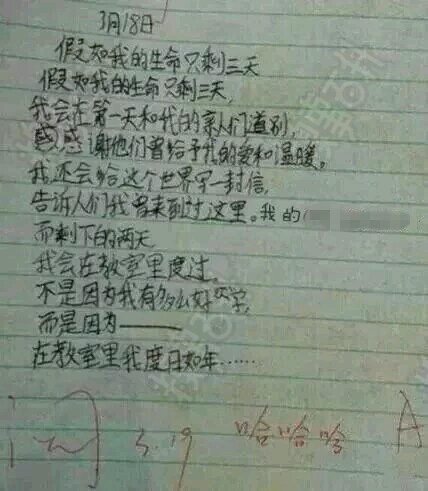 3月18日
假如我的生命只剩三天
假如我的生命只剩三天,
我会在第一天和我的亲人们道别,
感感谢他们曾给予我的爱和温暖。
我还会给这个世界写一封信,
告诉人们我曾来到过这里。我的
而剩下的两天
我会在教室里度过。
不是因为我有多么好学,
而是因为——
在教室里我度日如年……
阅 3.19 哈哈哈 A